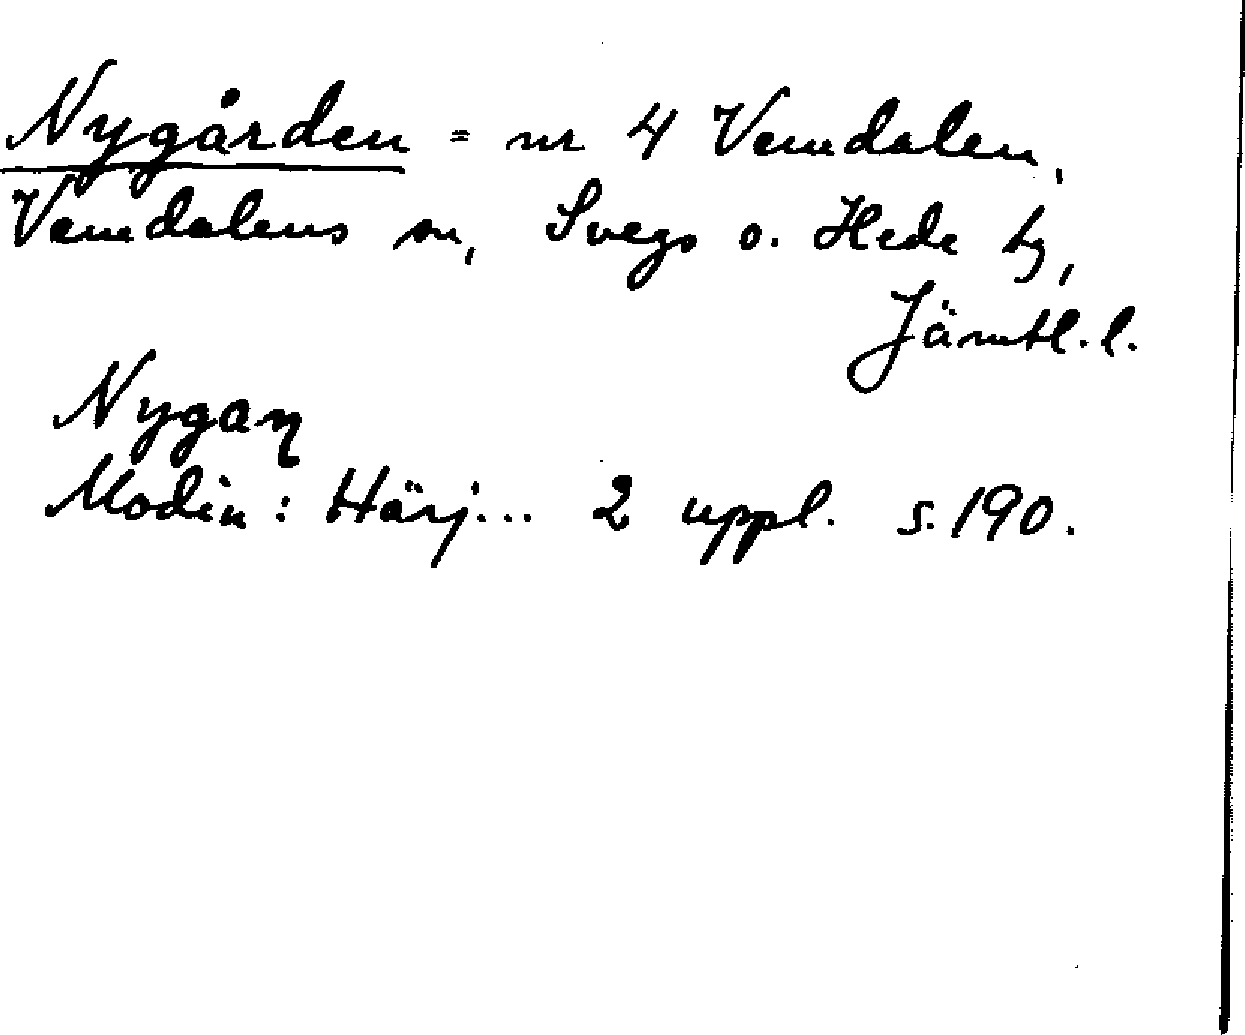 Nygården = nr 4 Vemdalen,
Vemdalens sn, Svegs o. Hede tg,
Jämtl. l.
Nygaɳ
Modin: Härj... 2 uppl. s. 190.